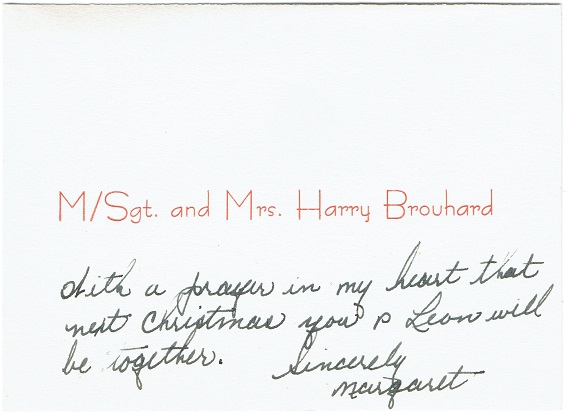 M/Sgt. and Mrs. Harry Brouhard
With a prayer in my heart that
next Christmas you & Leon will
be together. Sincerely
Margaret